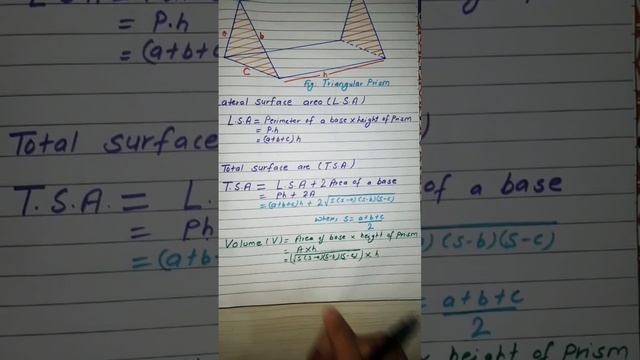 a
b
c
h
Fig: Triangular Prism
ateral surface area (L.S.A)
L.S.A = Perimeter of a base x height of Prism
= P.h
= (a+b+c) h
Total surface are (T.S.A)
T.S.A = L.S.A + 2 Area of a base
= Ph + 2A
= (a+b+c)h + 2√s(s-a)(s-b)(s-c)
where, s = a+b+c
2
Volume (V) = Area of base x height of Prism
= A x h
= (√s(s-a)(s-b)(s-c)) x h
= P.h
= (a+b+c
Total surface
T.S.A. = L.
= Ph
= (a+b
of a base
(s-b)(s-c)
= a+b+c
2
height of Prism